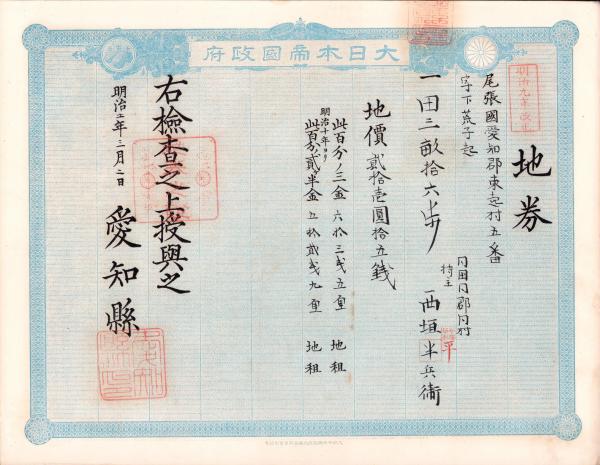 大日本帝國政府
明治九年改正
地券
尾張國愛知郡東起村五番
字下荒子起
一田二畝拾六歩
同国同郡同村
持主 西垣半兵衛
地價貳拾壹圓拾五銭
此百分ノ三金六拾三銭五厘 地租
明治十年ヨリ
此百分ノ貳ヶ半金五拾貳銭九厘 地租
右檢査之上授與之
明治十二年三月二日
愛知縣